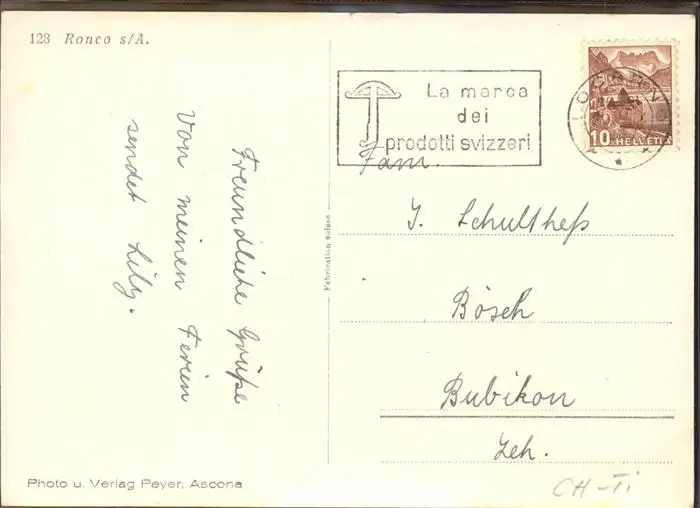 128 Ronco s/A.
Freundliche Grüße
von meinen Ferien
sendet Lily.
Photo u. Verlag Peyer, Ascona
Fabrication suisse
La marca
dei
prodotti svizzeri
LOCARNO
10 HELVETIA
Fam.
J. Schultheß
Bösch
Bubikon
Zch.
CH-Ti